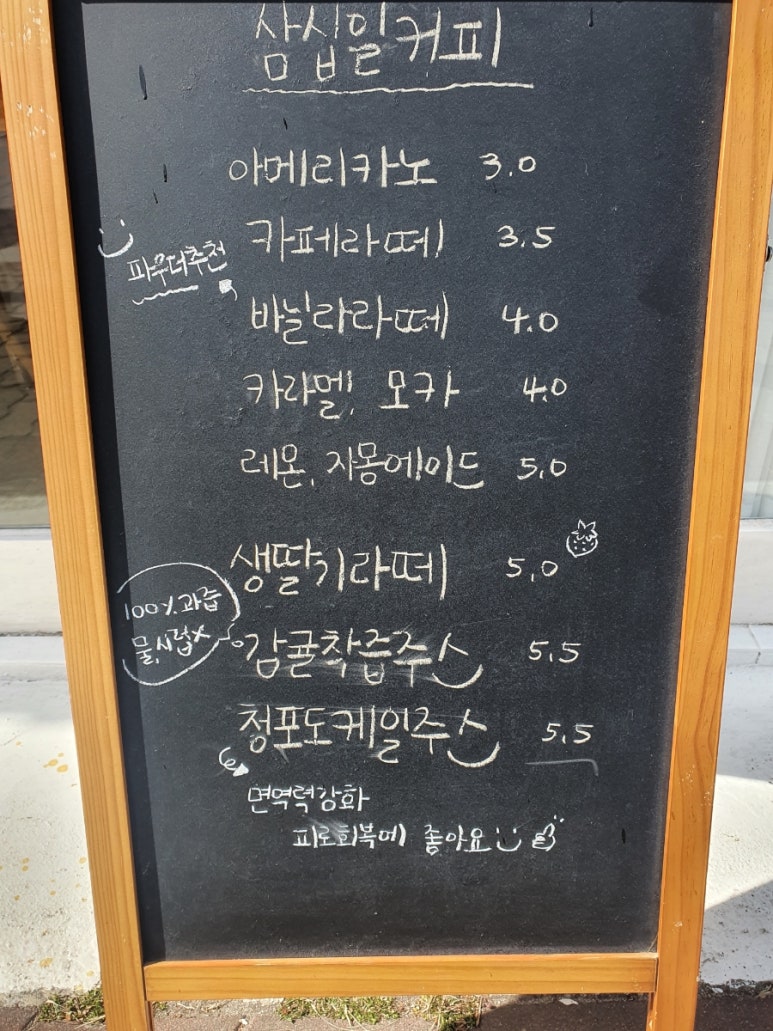 삼십일커피
아메리카노 3.0
카페라떼 3.5
파우더추천
바닐라라떼 4.0
카라멜, 모카 4.0
레몬, 자몽에이드 5.0
생딸기라떼 5.0
100% 과즙
물, 시럽X
감귤착즙주스 5.5
청포도케일주스 5.5
면역력강화
피로회복에 좋아요